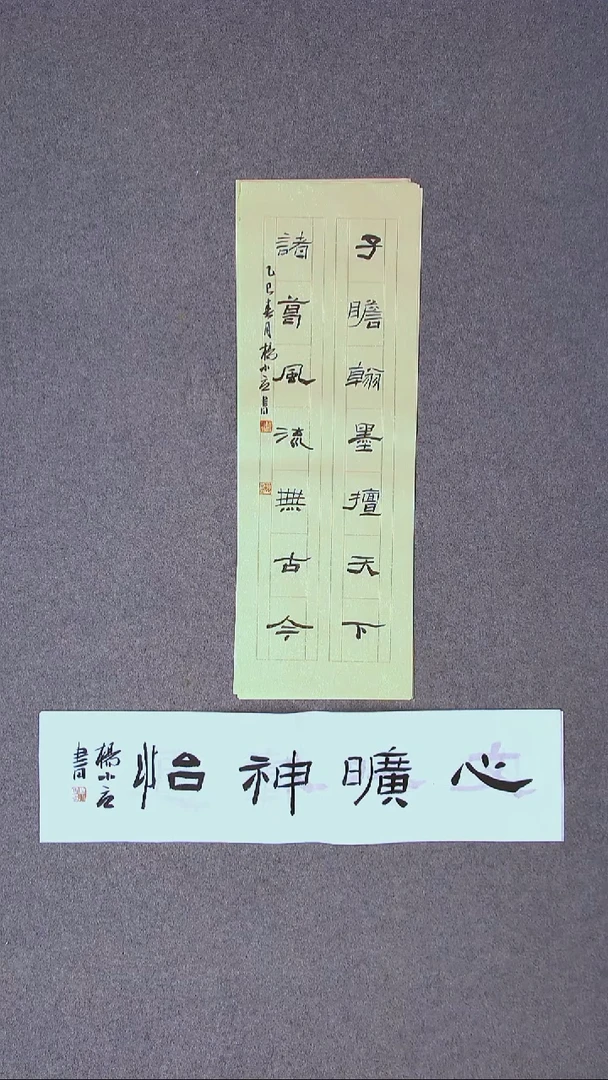 子瞻翰墨擅天下
諸葛風流無古今
乙巳春月楊小
書
心曠神怡
楊小
書